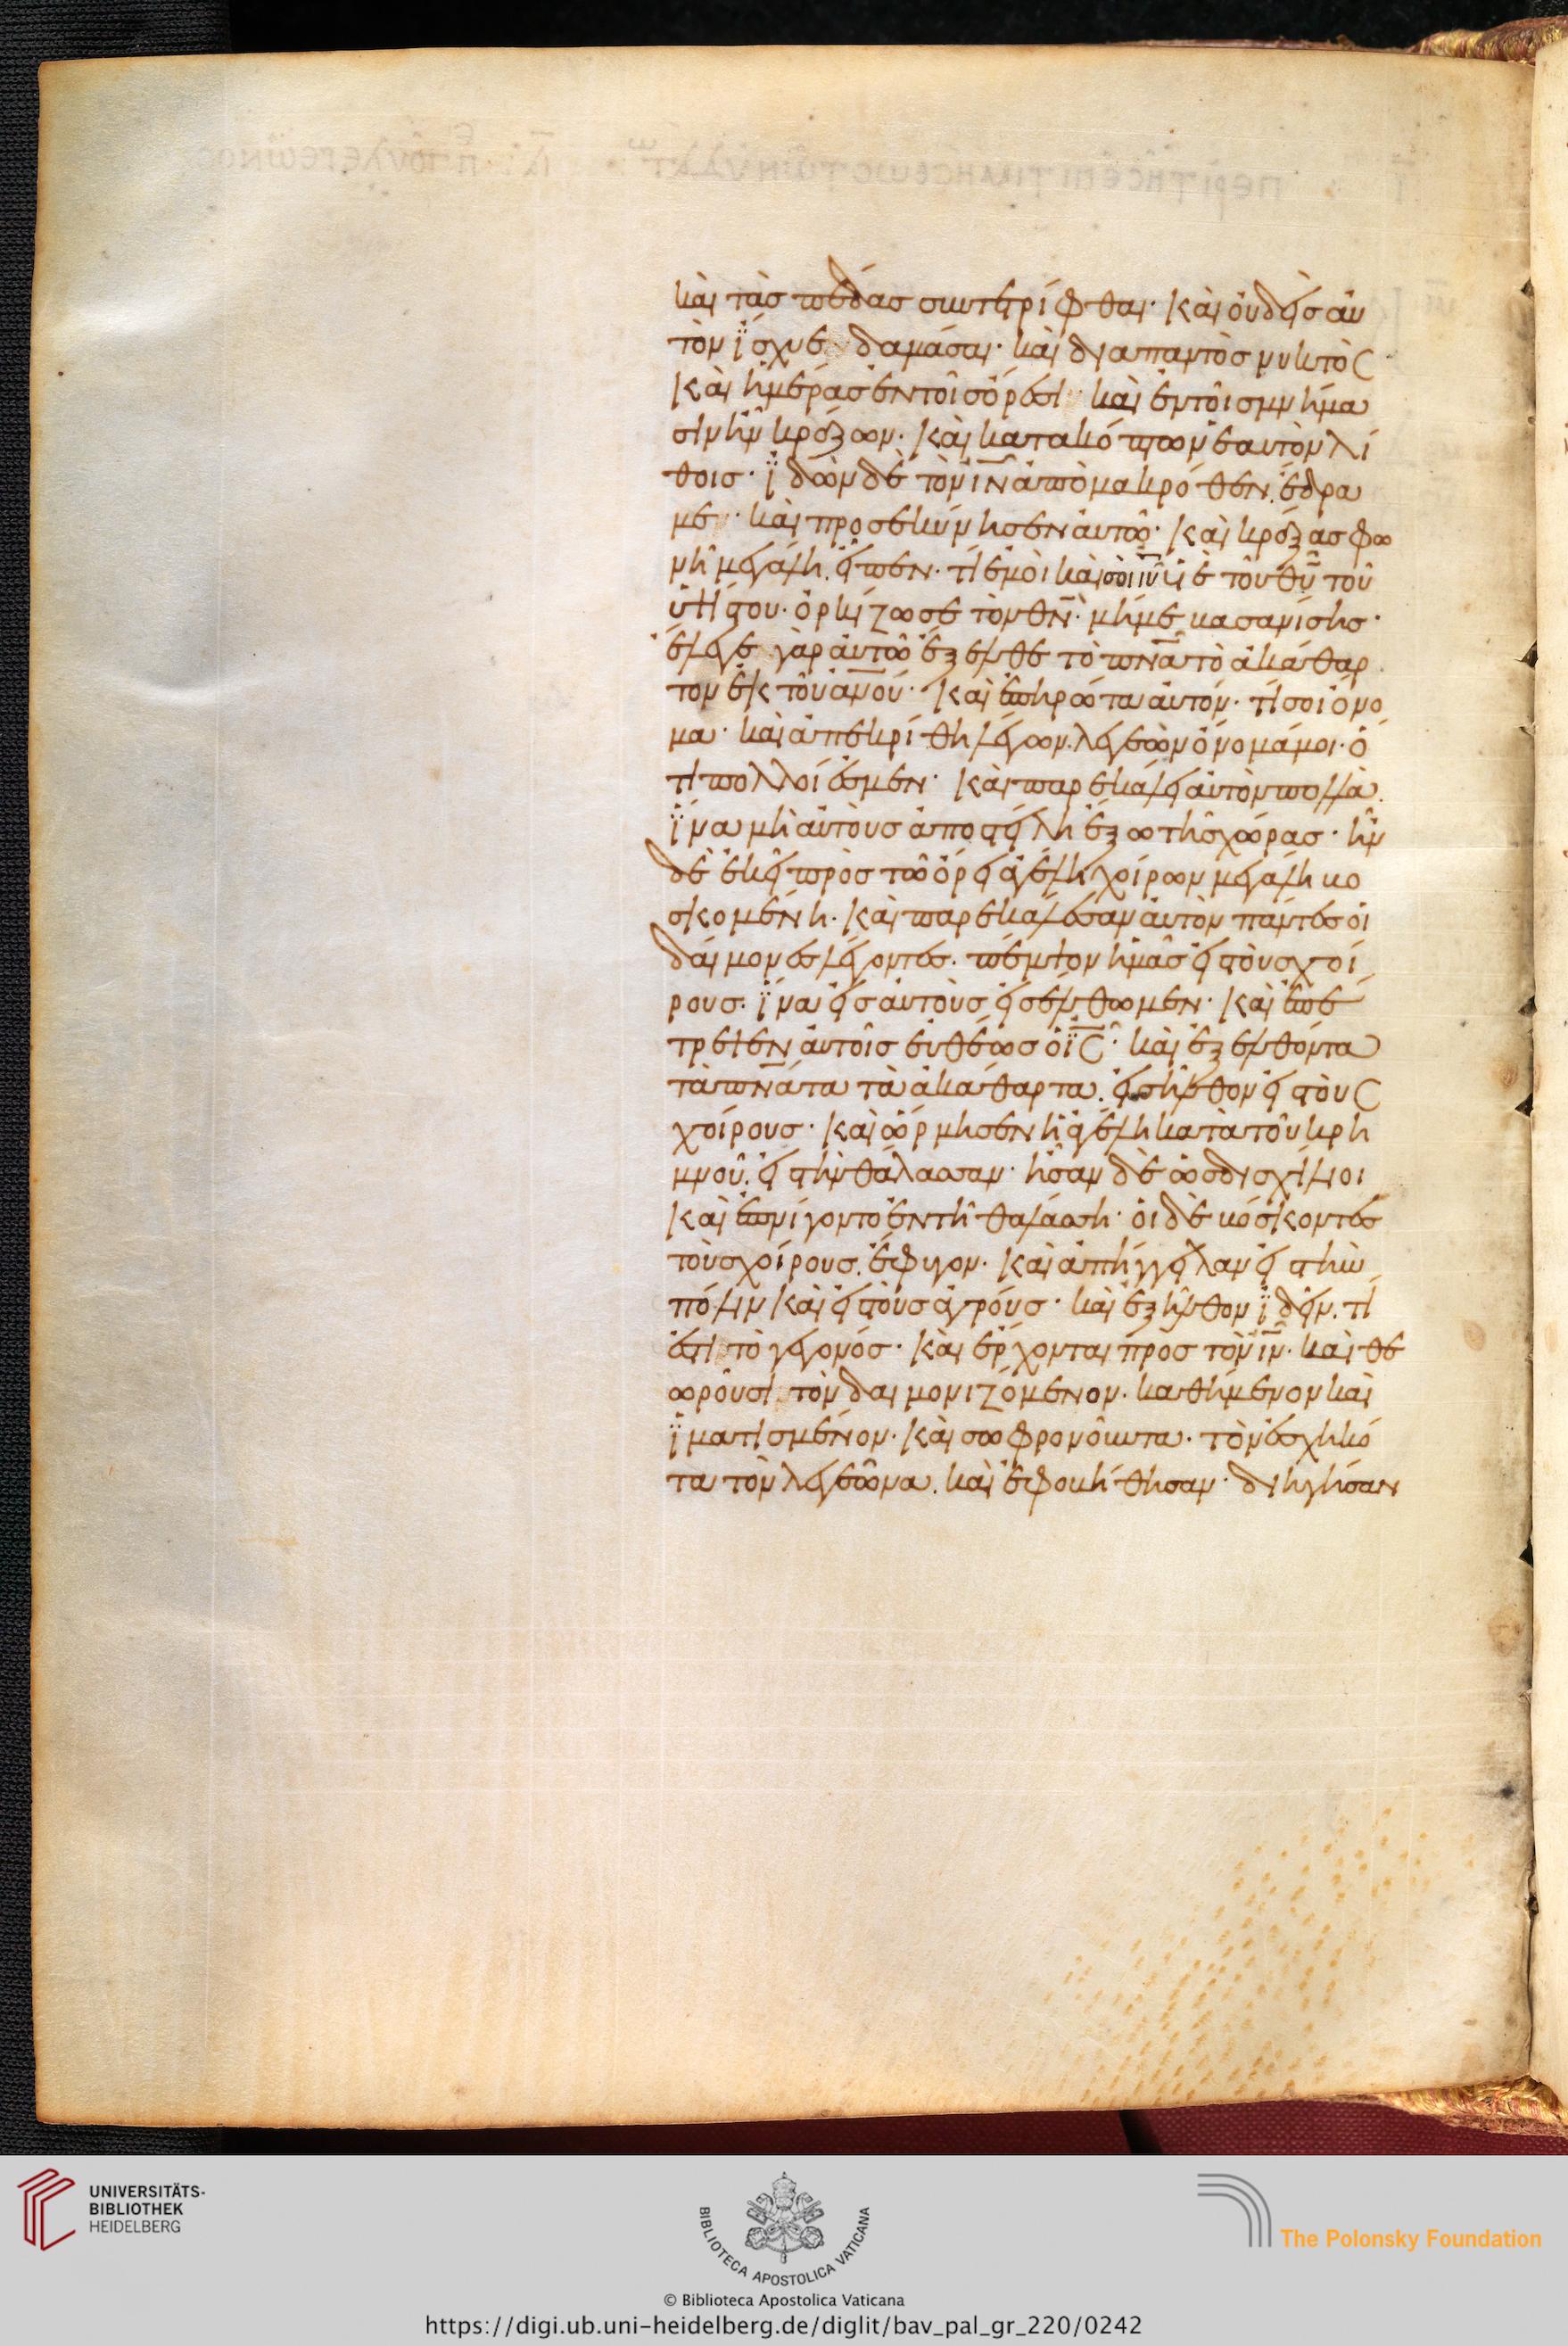 καὶ τὰσ πέδασ συντετρίφθαι· καὶ οὐδεὶσ αὐ
τὸν ἴσχυε δαμάσαι· καὶ διαπαντὸσ νυκτὸσ
καὶ ἡμέρασ ἐν τοῖσ ὄρεσι· καὶ ἐν τοῖσ μνήμα
σιν ἦν κράζων· καὶ κατακόπτων ἑαυτὸν λί
θοισ· ἰδὼν δὲ τὸν ιν ἀπὸ μακρόθεν. ἔδρα
με· καὶ προσεκύνησεν αὐτῶ· καὶ κράξασ φω
νῆ μεγάλη. εἶπεν· τί ἐμοὶ καὶ σοὶ ιυ υἱὲ τοῦ θυ τοῦ
ὑψίστου· ὁρκίζω σε τὸν θν· μή με βασανίσησ·
ἔλεγε γὰρ αὐτῶ ἔξελθε τὸ πνα τὸ ἀκάθαρ
τον ἐκ τοῦ ανου· καὶ ἐπηρώτα αὐτόν· τί σοι ὄνο
μα· καὶ ἀπεκρίθη λέγων. λεγεὼν ὄνομά μοι· ὅ
τι πολλοί ἐσμεν· καὶ παρεκάλει αὐτὸν πολλὰ.
ἵνα μὴ αὐτοὺσ ἀποστείλη ἔξω τῆσ χώρασ· ἦν
δὲ ἐκεῖ πρὸσ τῶ ὄρει ἀγέλη χοίρων μεγάλη βο
σκομένη· καὶ παρεκάλεσαν αὐτὸν πάντεσ οἱ
δαίμονεσ λέγοντεσ. πέμψον ἡμᾶσ εἰσ τοὺσ χοί
ρουσ· ἵνα εἰσ αὐτοὺσ εἰσέλθωμεν· καὶ ἐπέ
τρεψεν αὐτοῖσ εὐθέωσ ὁ ισ· καὶ ἐξελθόντα
τὰ πνατα τὰ ἀκάθαρτα. εἰσῆλθον εἰσ τοὺσ
χοίρουσ· καὶ ὥρμησεν ἡ ἀγέλη κατὰ τοῦ κρη
μνοῦ. εἰσ τὴν θάλασσαν· ἦσαν δὲ ὡσ δισχίλιοι
καὶ ἐπνίγοντο ἐν τῆ θαλάσση· οἱ δὲ βόσκοντεσ
τοὺσ χοίρουσ. ἔφυγον· καὶ ἀπήγγειλαν εἰσ τὴν
πόλιν καὶ εἰσ τοὺσ ἀγρούσ· καὶ ἐξῆλθον ἰδεῖν. τί
ἐστι τὸ γεγονόσ· καὶ ἔρχονται πρὸσ τὸν ιν· καὶ θε
ωροῦσι τὸν δαιμονιζόμενον. καθήμενον καὶ
ἱματισμένον· καὶ σωφρονοῦντα· τὸν ἐσχηκό
τα τὸν λεγεῶνα. καὶ ἐφοβήθησαν· διηγήσαν
UNIVERSITÄTS-
BIBLIOTHEK
HEIDELBERG
BIBLIOTECA APOSTOLICA VATICANA
The Polonsky Foundation
© Biblioteca Apostolica Vaticana
https://digi.ub.uni-heidelberg.de/diglit/bav_pal_gr_220/0242